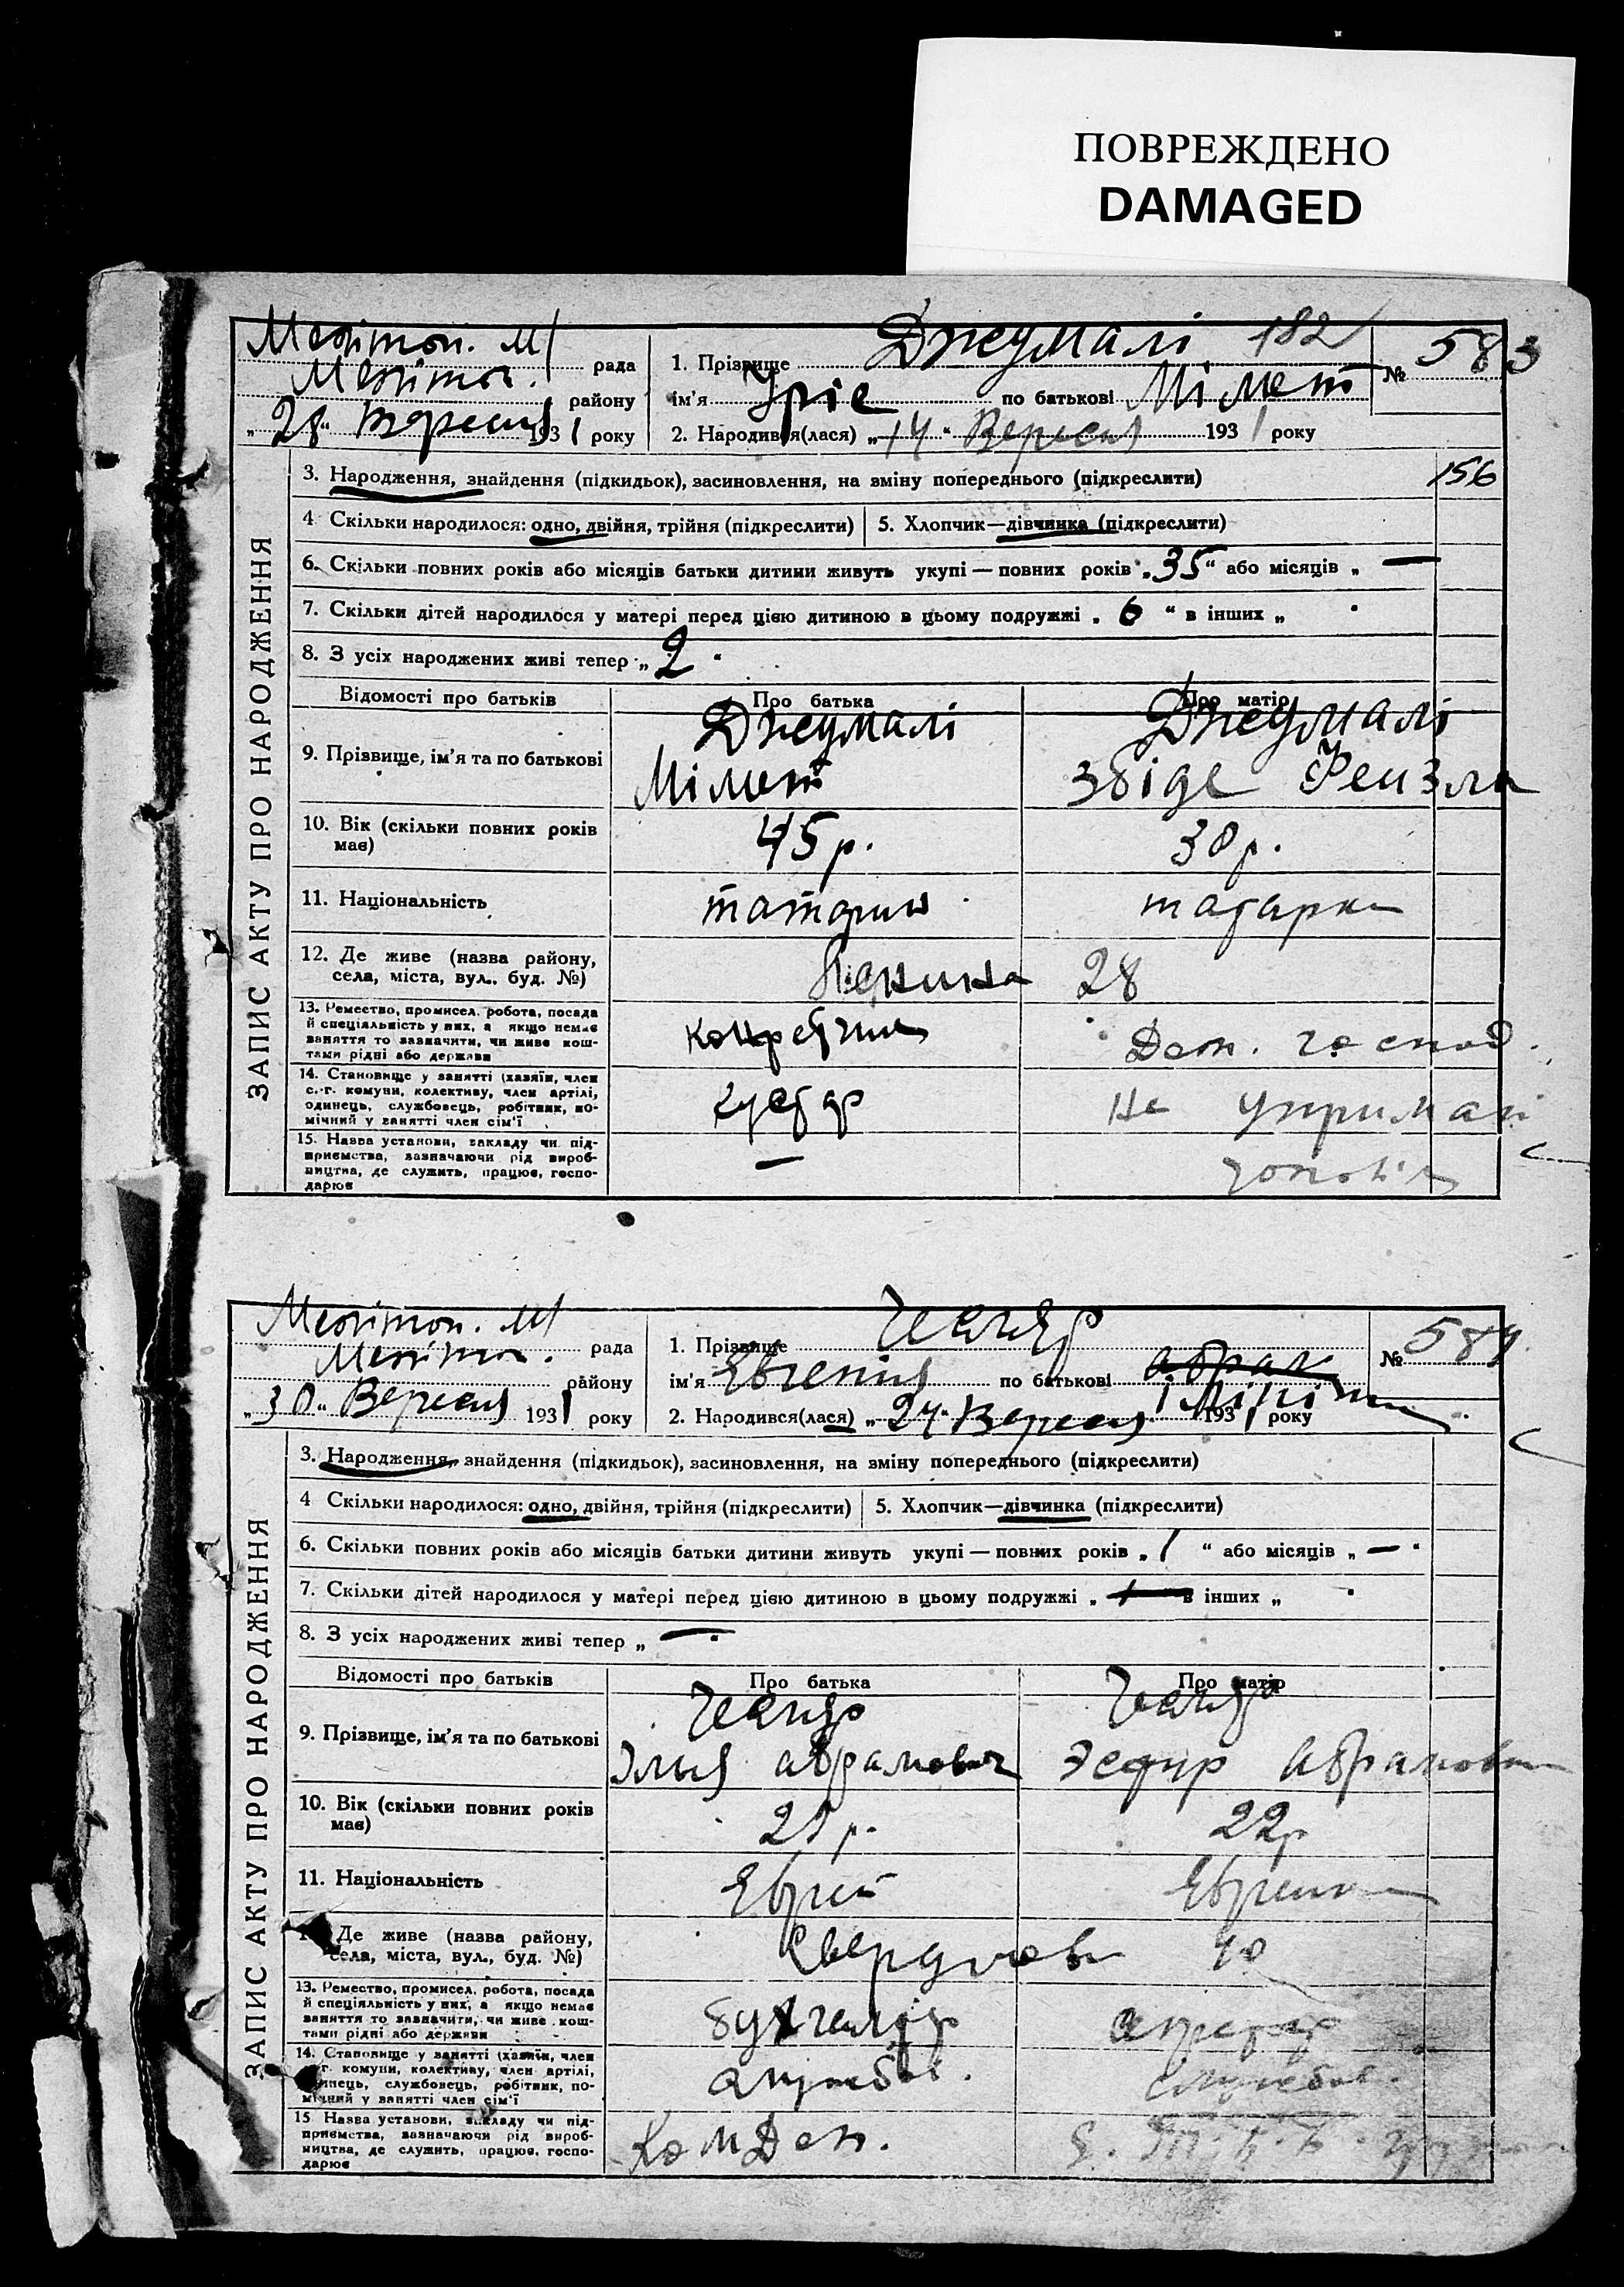 ПОВРЕЖДЕНО
DAMAGED
Меліт. М рада
Меліт. району
„28“ Вересня 1931 року
1. Прізвище Джемалі 182
№ 583
ім'я Уріе по батькові Мімет
2. Народився(лася) „14“ Вересня 1931 року
ЗАПИС АКТУ ПРО НАРОДЖЕННЯ
3. Народження, знайдення (підкидьок), засиновлення, на зміну попереднього (підкреслити)
156
4 Скільки народилося: одно, двійня, трійня (підкреслити) 5. Хлопчик—дівчинка (підкреслити)
6. Скільки повних років або місяців батьки дитини живуть укупі — повних років „35“ або місяців „ —
7. Скільки дітей народилося у матері перед цією дитиною в цьому подружжі „ 6 “ в інших „
8. З усіх народжених живі тепер „ 2 “
Відомості про батьків Про батька Про матір
9. Прізвище, ім'я та по батькові
Джемалі Джемалі
Мімет
10. Вік (скільки повних років має)
45 р. 30 р.
11. Національність
татарин татарка
12. Де живе (назва району, села, міста, вул., буд. №)
Леніна 28
13. Ремество, промисел, робота, посада й спеціяльність у них, а якщо немає заняття то зазначити, чи живе коштами рідні або держави
Дом. господ.
14. Становище у занятті (хазяїн, член с.-г. комуни, колективу, член артілі, одинець, службовець, робітник, помічний у занятті член сім'ї
кустар на утриман
15. Назва установи, закладу чи підприємства, зазначаючи рід виробництва, де служить, працює, господарює
— чоловіка
Меліт. М рада
Меліт. району
„30“ Вересня 1931 року
1. Прізвище
№ 584
ім'я Евгения по батькові
2. Народився(лася) „24“ Вересня 1931 року
ЗАПИС АКТУ ПРО НАРОДЖЕННЯ
3. Народження, знайдення (підкидьок), засиновлення, на зміну попереднього (підкреслити)
4 Скільки народилося: одно, двійня, трійня (підкреслити) 5. Хлопчик—дівчинка (підкреслити)
6. Скільки повних років або місяців батьки дитини живуть укупі — повних років „ 1 “ або місяців „ — “
7. Скільки дітей народилося у матері перед цією дитиною в цьому подружжі „ — в інших „
8. З усіх народжених живі тепер „ —
Відомості про батьків Про батька Про матір
9. Прізвище, ім'я та по батькові
Абрамович Эсфир Абрамовн
10. Вік (скільки повних років має)
22 р
11. Національність
Еврей Еврейка
Де живе (назва району, села, міста, вул., буд. №)
Свердлова 40
13. Ремество, промисел, робота, посада й спеціяльність у них, а якщо немає заняття то зазначити, чи живе коштами рідні або держави
бухгалтер
14. Становище у занятті (хазяїн, член с.-г. комуни, колективу, член артілі, одинець, службовець, робітник, помічний у занятті член сім'ї
службов. службов.
15 Назва установи, закладу чи підприємства, зазначаючи рід виробництва, де служить, працює, господарює